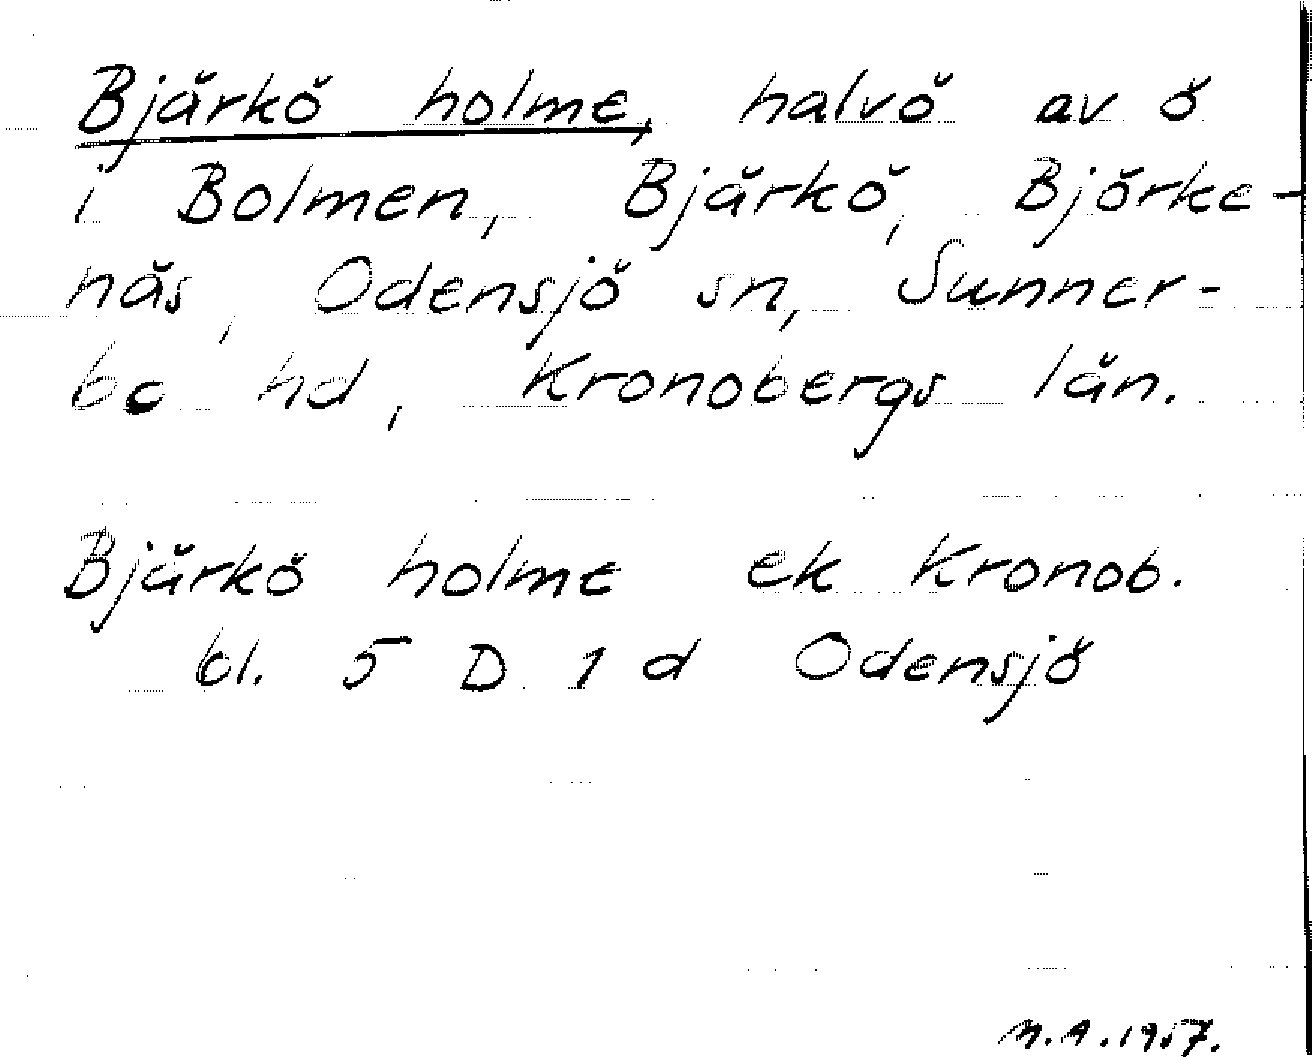 Bjärkö holme, halvö av ö
i Bolmen, Bjärkö, Björke-
näs, Odensjö sn, Sunner-
bo hd, Kronobergs län.
Bjärkö holme ek Kronob.
bl. 5 D 1 d Odensjö
M.A. 1957.